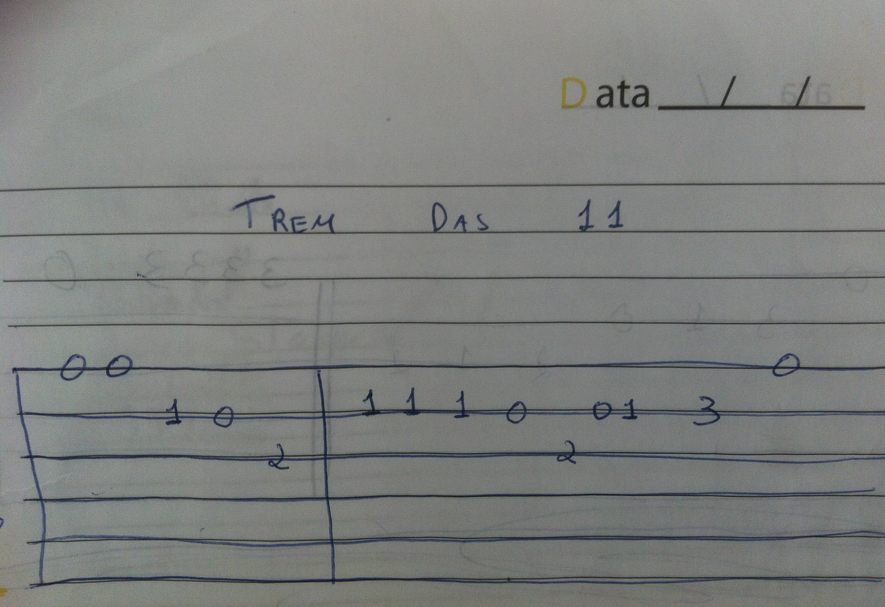 Data __/__/__
TREM DAS 11
0 0 0
1 0 1 1 1 0 0 1 3
2 2